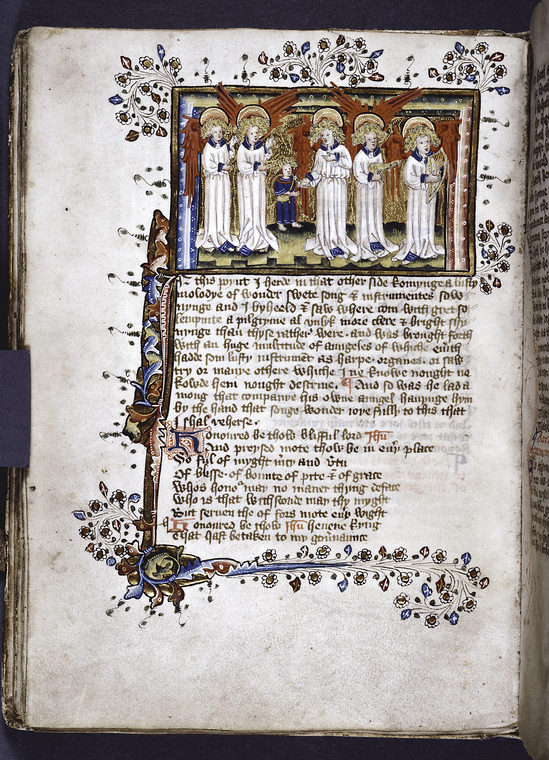 At this poynt I herde in that other side komynge a lusty
molodye of wonder swete song & instrumentes sow
nynge and I byheeld & saw where com with gret so
lempnite a pilgryme al more clere & bright schy
nynge than thyse rathere were and was brought forth
with an huge multitude of aungeles of whiche euerich
hade som lusty instrument as harpe organes or saw
try or manye othere whiche I ne knowe nought ne
kowde hem nought descriue ¶ And so was he lad a
mong that companye his owne aungel hauynge hym
by the hand that songe wonder ioyefully to this that
I shal reherse
Honoured be thow blisful lord Jhu
And preysed mote thow be in euery place
So ful of myght and vtu
Of blisse of bounte of pite & of grace
Whos honor may no maner thyng deface
Who is that withstonde may thy myght
But seruen the of fors mote euery wight
Honoured be thow Jhu heuene kyng
That hast betaken to my gouernaunce